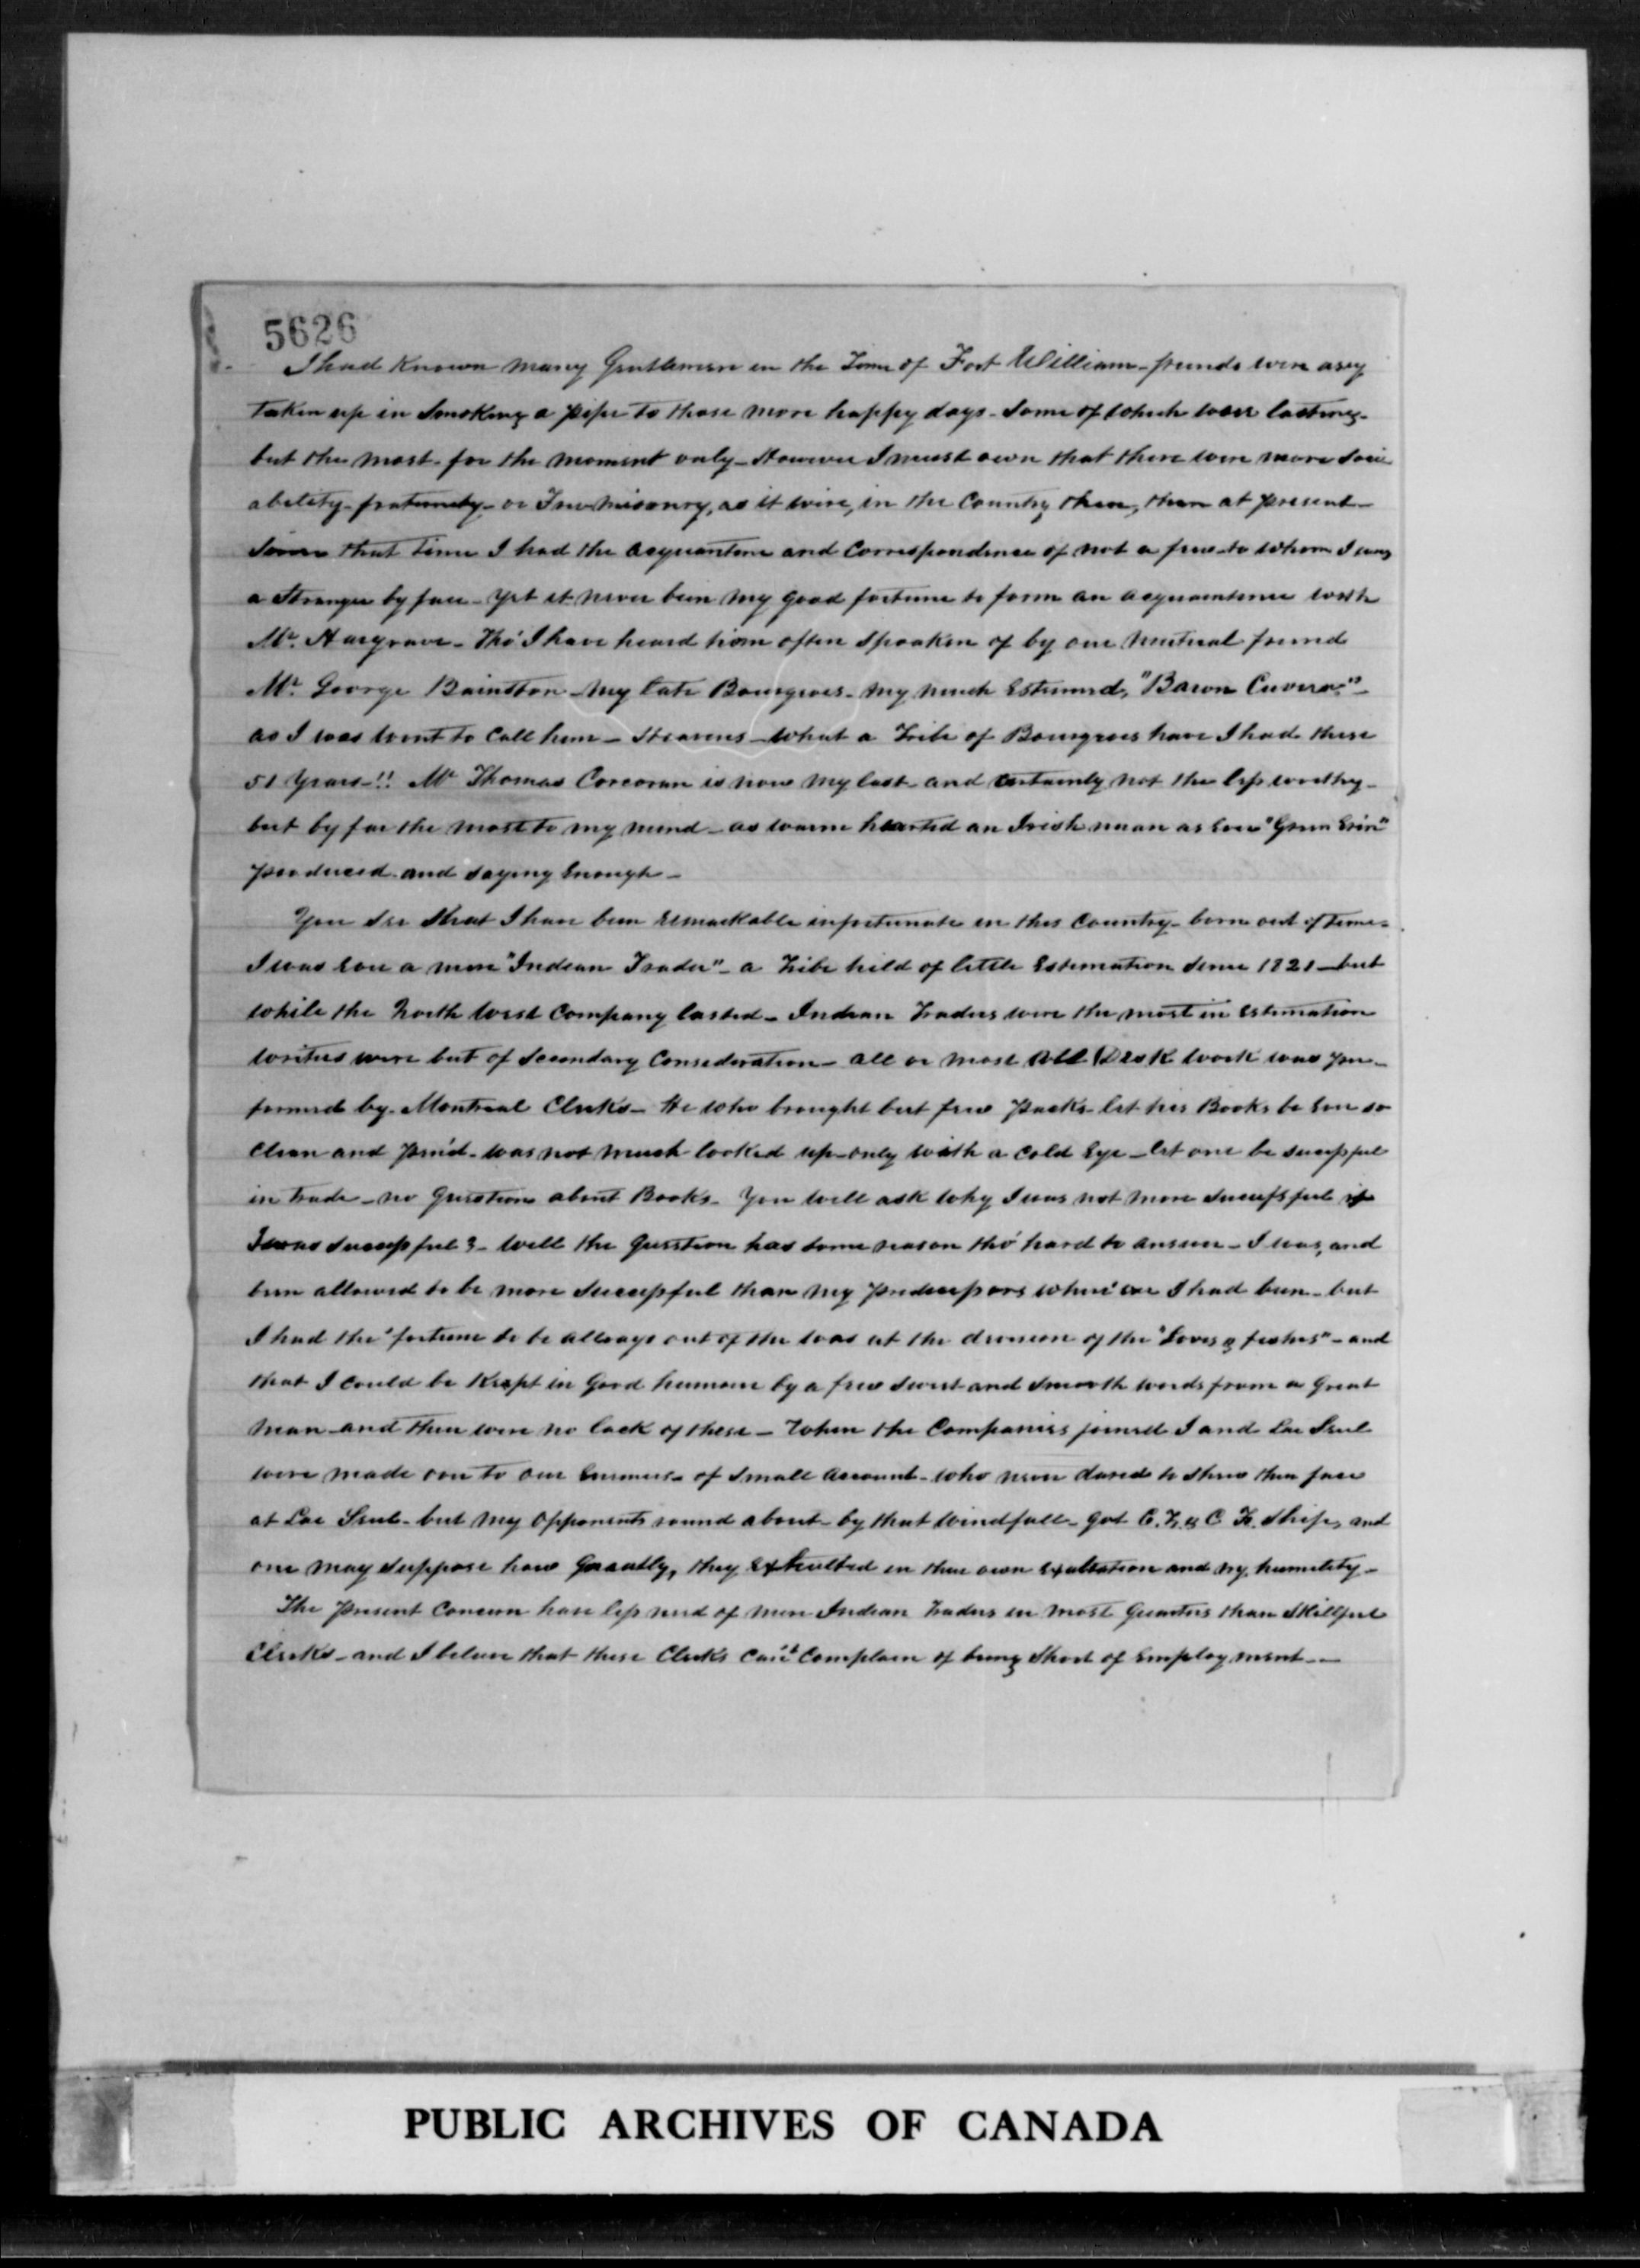 5626
I had Known many Gentlemen in the Time of Fort William - friends were asey
taken up in Smoking a pipe to those more happy days - Some of which were lasting -
but the most - for the moment only - However I must own that there were more Soci
ability - fraternity - or Free masonry, as it were, in the Country then, than at present -
Since that time I had the acquantenc and Correspondence of not a few - to whom I was
a Stranger by face - yet it never been my good fortune to form an acquaintence with
Mr. Hargrave - Tho' I have heard him often Spoaken of by our Mutual friend
Mr. George Bainston - My late Bourgeois - my much Esteemed, "Baron
as I was wont to Call him - Heavens - what a Tribe of Bourgeois have I had these
51 Years - !! Mr Thomas Corcoran is now my last - and Certainly not the less worthy -
but by far the most to my mind - as warm hearted an Irish man as Ever "Green Erin"
produced - and saying Enough -
You see that I have been remarkable unfortunate in this Country - born out of time -
I was Ever a mere "Indian Trader" - a Tribe held of little Estimation Since 1821 - but
while the North West Company lasted - Indian Traders were the most in Estimation
writers were but of Secondary Consideration - all or most all Desk work was per -
formed by - Montreal Clerks - He who brought but few Packs - let his Books be Ever so
Clean and was not much looked up - only with a Cold Eye - let one be successful
in trade - no Question about Books - You will ask why I was not more Successful if
I was Successful? - Well the Question has some reason tho' hard to answer - I was, and
been allowed to be more Successful than my Predecessors where'ere I had been - but
I had the 'fortune to be allways out of the way at the division of the "Loves & fishes" - and
that I could be Keept in Good humour by a few Sweet and Smooth words from a Great
Man - and there were no lack of these - When the Companies joined I and Lac Seul
were made over to our Enemies - of Small Account - who never dared to Shew their face
at Lac Seul - but My Opponents round about - by that windfall - got C. T. & C F. Ships, and
one may Suppose how Greatly, they Exhulted in their own Exaltation and my humility -
The Present Concern have less need of mere Indian Traders in most Quarters than Skillful
Clerks - and I believe that these Clerks Can't Complain of being Short of Employment -
PUBLIC ARCHIVES OF CANADA